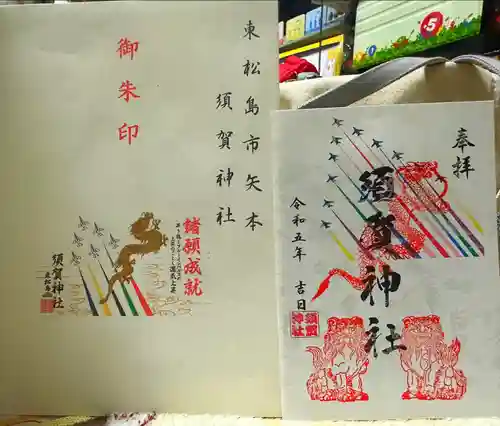 東松島市矢本
須賀神社
御朱印
諸願成就
須賀神社
奉拝
須賀神社
令和五年 吉日
須賀
神社
5